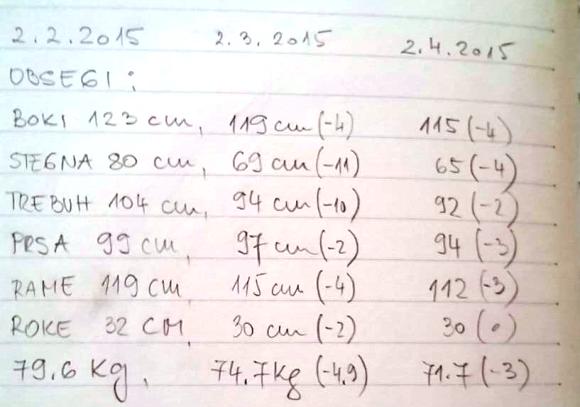 2.2.2015 2.3.2015 2.4.2015
OBSEGI:
BOKI 123 cm, 119 cm (-4) 115 (-4)
STEGNA 80 cm, 69 cm (-11) 65 (-4)
TREBUH 104 cm, 94 cm (-10) 92 (-2)
PRSA 99 cm, 97 cm (-2) 94 (-3)
RAME 119 cm, 115 cm (-4) 112 (-3)
ROKE 32 CM, 30 cm (-2) 30 (0)
79.6 Kg, 74.7 kg (-4.9) 71.7 (-3)